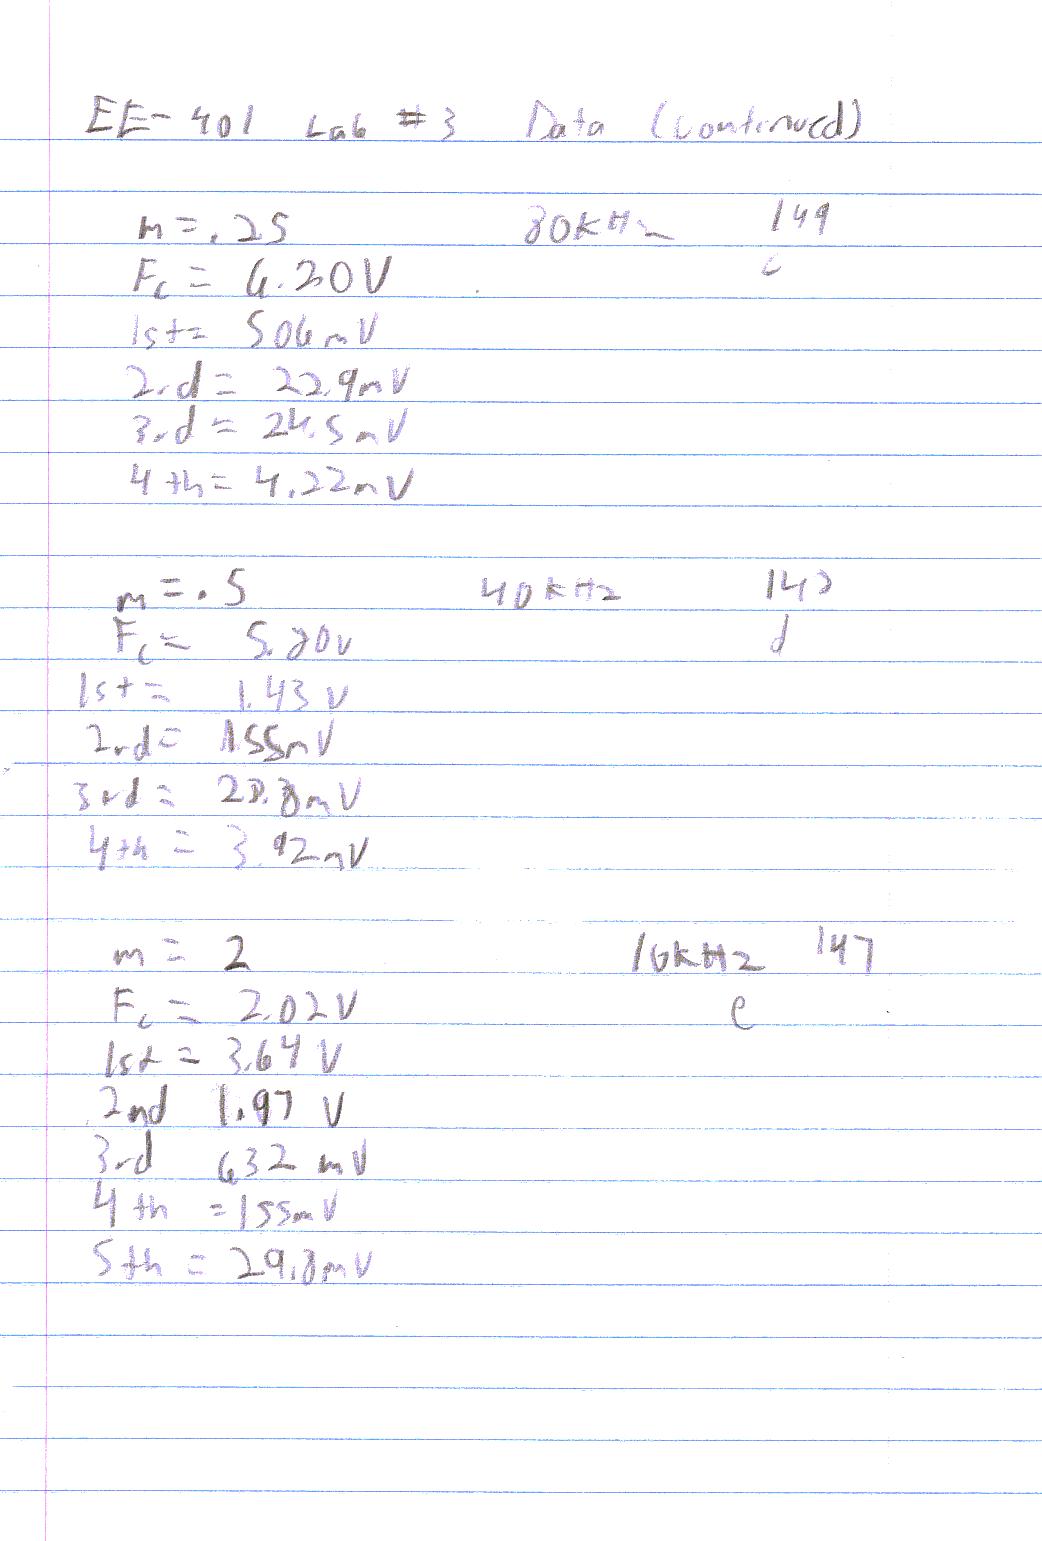 EE-401 Lab #3 Data (continued)
m = .25 80kHz 149
c
Fc = 6.20V
1st = 506mV
2nd = 22.9mV
3rd = 24.5mV
4th = 4.22mV
m = .5 40kHz
d
Fc = 5.80V
1st = 1.43V
2nd = 155mV
3rd =
4th = 3.92mV
m = 2 10kHz 147
e
Fc = 2.02V
1st = 3.64V
2nd 1.97 V
3rd 632 mV
4th = 155mV
5th = 29.8mV